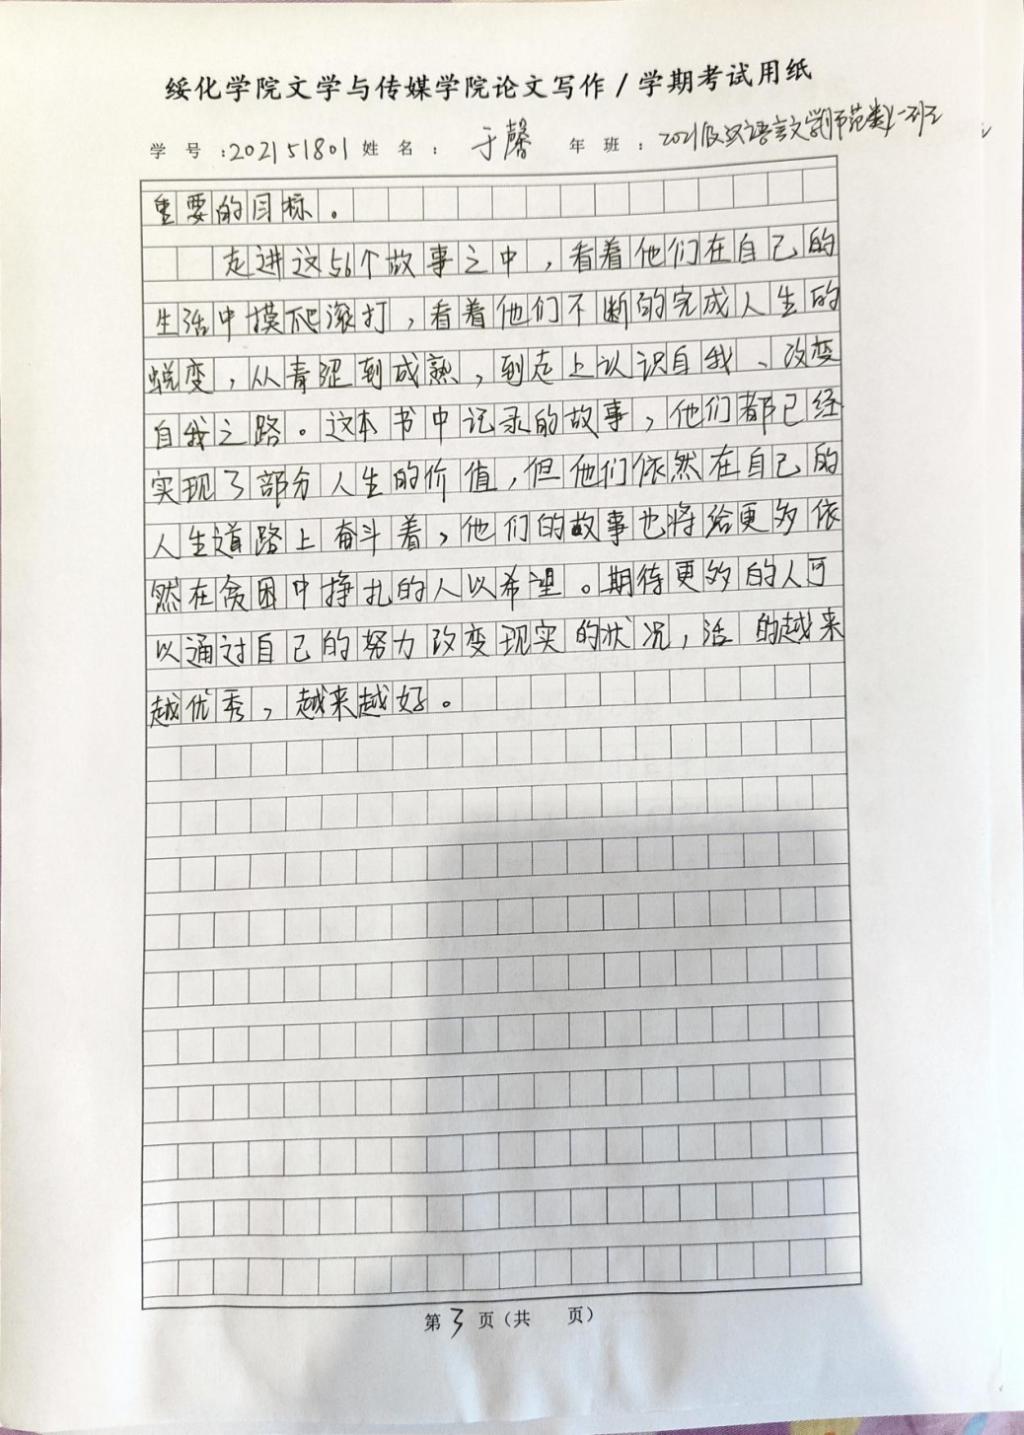 绥化学院文学与传媒学院论文写作/学期考试用纸
学号:202151801 姓名: 于馨 年班: 2021级汉语言文学师范类一班
重要的目标。
走进这56个故事之中,看着他们在自己的
生活中摸爬滚打,看着他们不断的完成人生的
蜕变,从青涩到成熟,到走上认识自我、改变
自我之路。这本书中记录的故事,他们都已经
实现了部分人生的价值,但他们依然在自己的
人生道路上奋斗着,他们的故事也将给更多依
然在贫困中挣扎的人以希望。期待更多的人可
以通过自己的努力改变现实的状况,活的越来
越优秀,越来越好。
第3页(共 页)